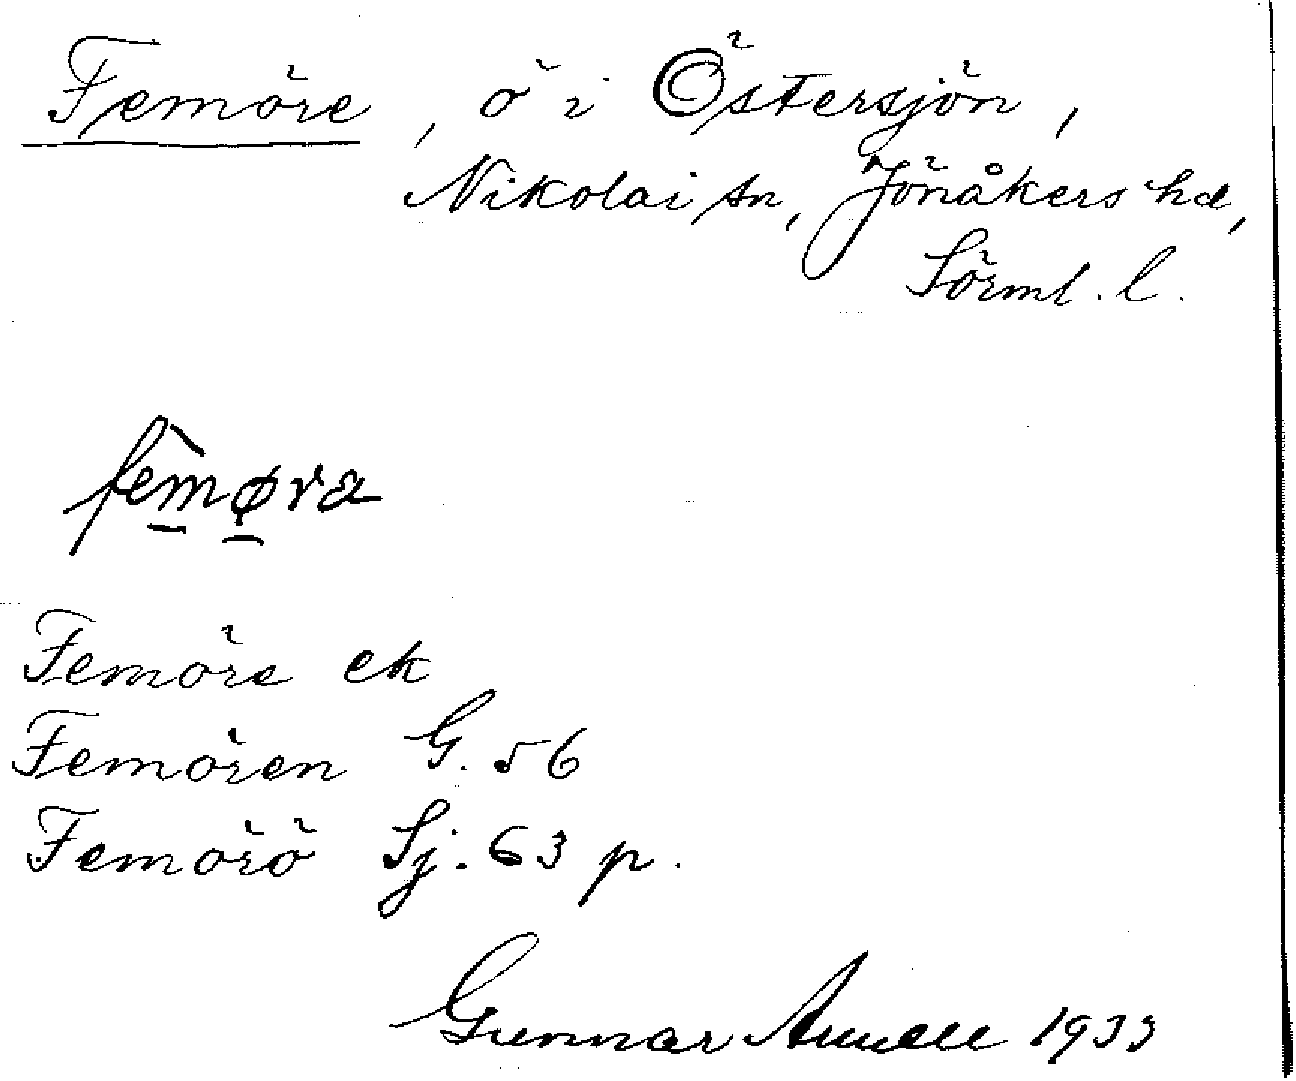 Femöre, ö i Östersjön,
Nikolai sn, Jönåkers hd,
Sörml. l.
fem̲øra
Femöre ek
Femören G. 56
Femörö Sj. 63 p.
Gunnar 1933